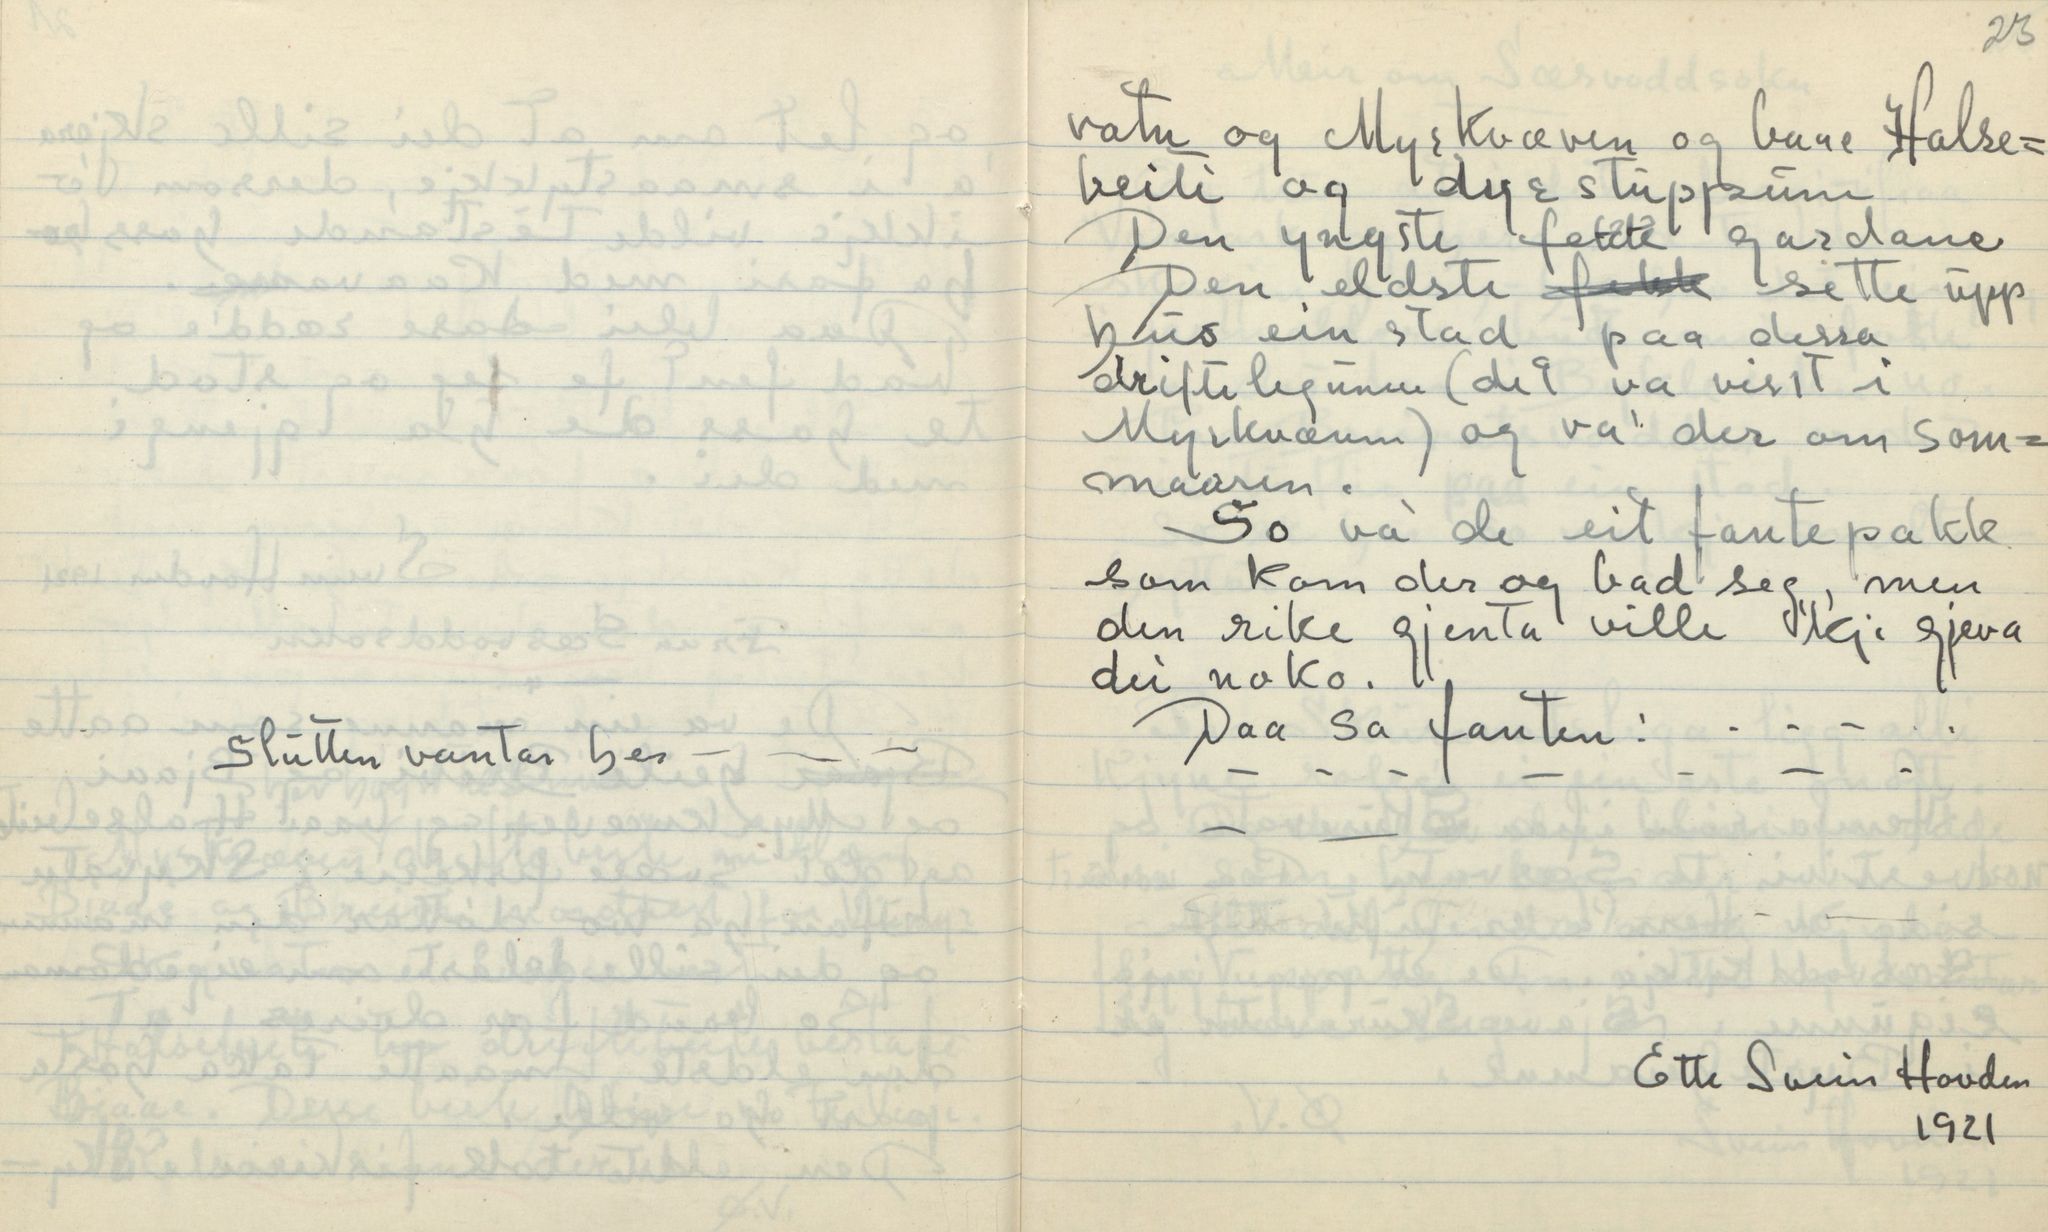 Slutten vantar her – – –
23
vatn og Myrkvæven og baae Halse=
beiti og dyrstuppum
Den yngste fekk gardane
Den eldste fekk sette upp
hus ein stad paa dessa
driftelegunne (det va visst i
Myrkvæum) og va' der om som=
maaren.
So va' de eit fantepakk
som kom der og bad seg, men
den rike gjenta ville 'kje gjeva
dei noko.
Daa sa fanten: - - - - -
– – – – – – –
– –
Ette Svein Hovden
1921